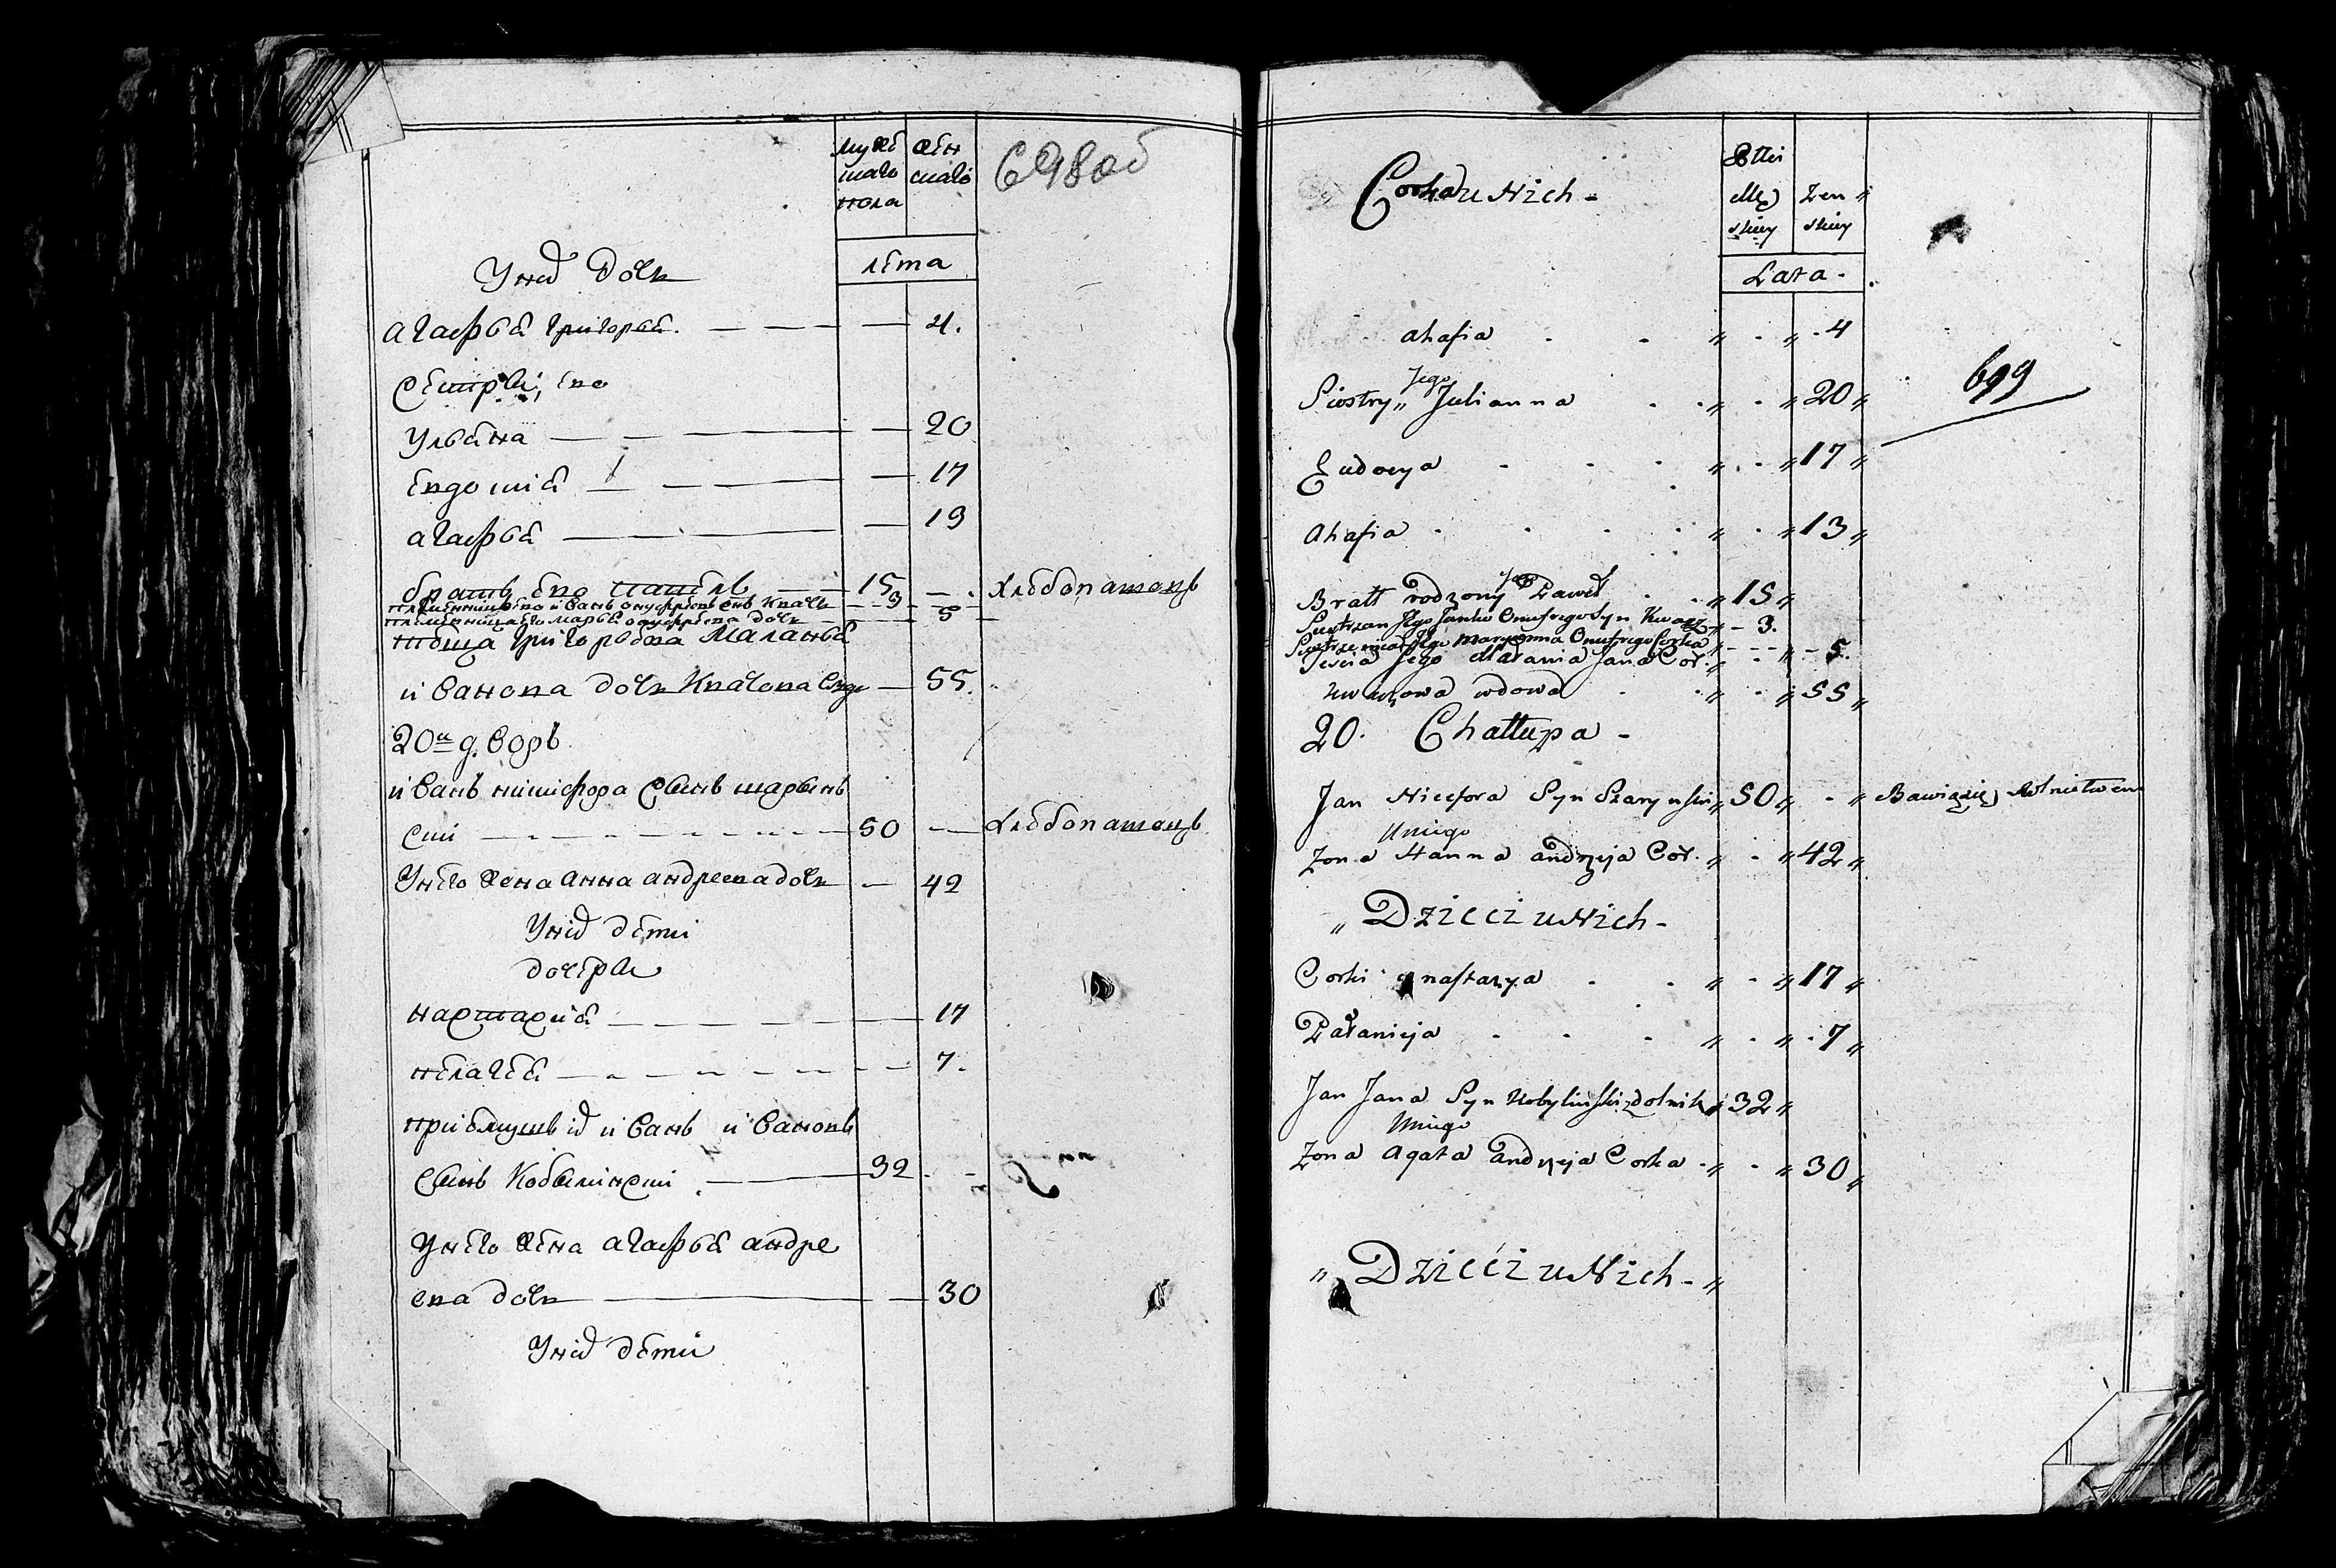 мужескаго пола
женскаго
698об
лета
У них дочь
агафья григорья. 4.
Сестры, его
Ульяна 20
Евдокия 17
агафья 13
братъ его павелъ 15 хлебопашецъ
племянникъ его иванъ онуфрiевъ сынъ Квачъ 3
племянница его марья онуфрiева дочь 5
теща григорьева Маланья
иванова дочь Квачова вдова 55.
20й дворъ
иванъ никифора сынъ шарын
ски 50 хлебопашецъ
У него жена анна андреева дочь 42
У них дети
дочеры
настасия 17
пелагея 7.
при блишъ их иванъ ивановъ
сынъ Кобылински 32
У него жена агафья андре
ева дочь 30
У них дети
Corka u Nich -
Płci
Męzkiey
Zenskiey
Lata -
Ahafia 4
Siostry Jego Julianna 20
Eudocya 17
Ahafia 13
699
Bratt rodzony Jego Paweł 15
Siostrzan Jego Janko Onufrego Syn Kwacz 3.
Siostrzenica Jego Maryanna Onufrego Corka 5.
Tescia Jego Małania Jana Cor.
Kwaczowa wdowa 55
20. Chattupa -
Jan Nicefora Syn Szarynski 50 Bawi się Rolnictwem
U niego
Zona Hanna andrzeja Cor. 42
Dzieci u Nich -
Corki Anastazya 17
Pałanieja 7
Jan Jana Syn Kobylinski zdolnik 32
U niego
Zona Agata andrzeja Corka 30
Dzieci u Nich -